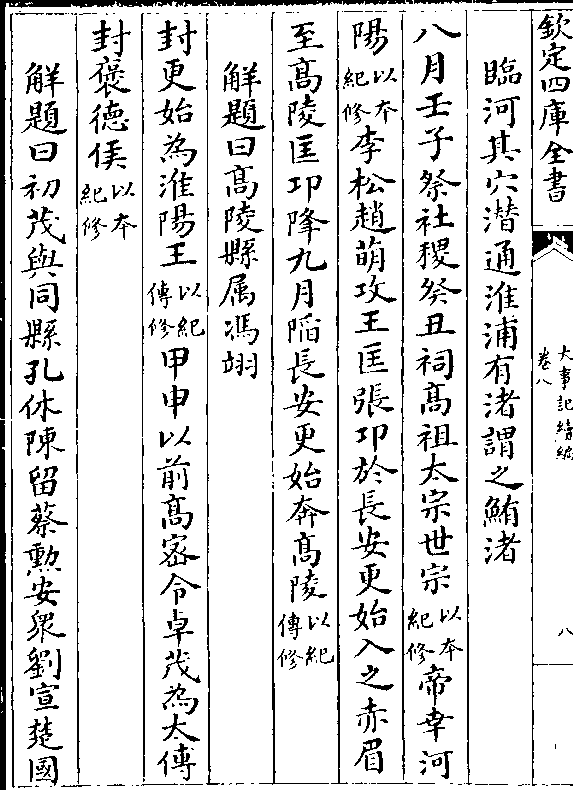 欽定四庫全書
大事記續編
卷八
八
臨河其穴潜通淮浦有渚謂之鮪渚
八月壬子祭社稷癸丑祠髙祖太宗世宗以本紀修帝幸河
陽以本紀修李松趙萌攻王匡張卬於長安更始入之赤眉
至髙陵匡卬降九月䧟長安更始奔髙陵以紀傳修
解題曰髙陵縣属馮翊
封更始為淮陽王以紀傳修甲申以前髙宻令卓茂為太傅
封褒德侯以本紀修
解題曰初茂與同縣孔休陳留蔡勲安衆劉宣楚國